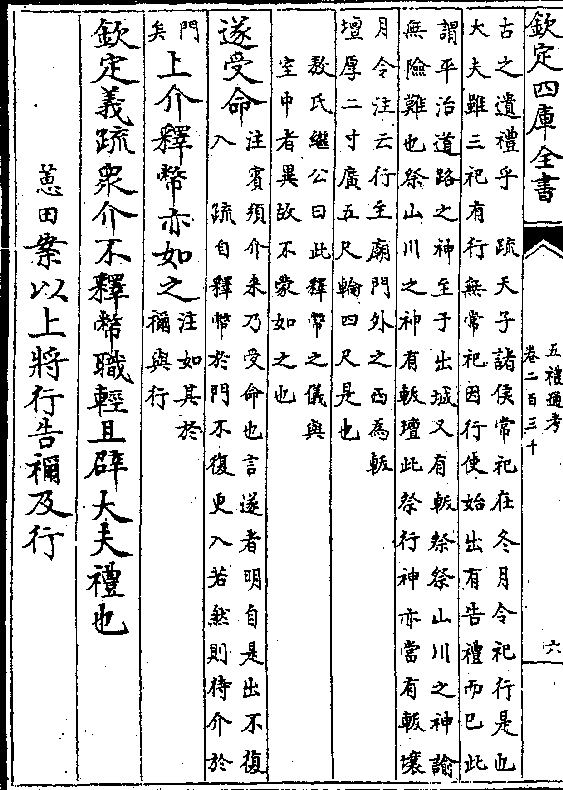 欽定四庫全書
五禮通考
卷二百三十
六
古之遺禮乎 疏天子諸侯常祀在冬月令祀行是也
大夫雖三祀有行無常祀因行使始出有告禮而已此
謂平治道路之神至于出城又有軷祭祭山川之神諭
無險難也祭山川之神有軷壇此祭行神亦當有軷壤
月令注云行在廟門外之西為軷
壇厚二寸廣五尺輪四尺是也
敖氏繼公曰此釋幣之儀與
室中者異故不蒙如之也
遂受命
注賓須介來乃受命也言遂者明自是出不復
入 疏自釋幣於門不復更入若然則待介於
門
矣
上介釋幣亦如之
注如其於
禰與行
欽定義疏衆介不釋幣職輕且辟大夫禮也
蕙田案以上將行告禰及行